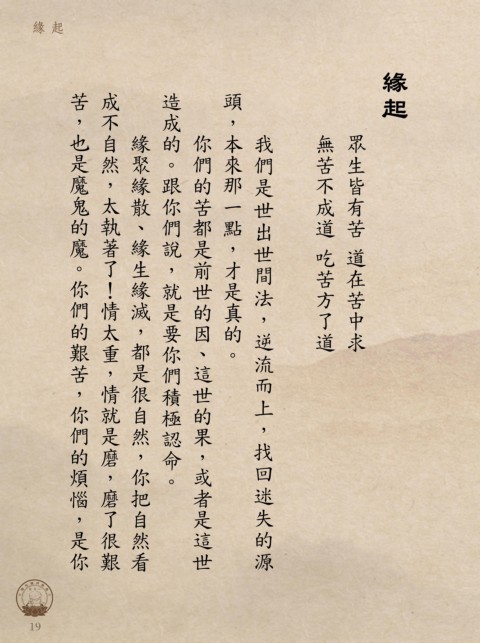 緣起
緣起
眾生皆有苦 道在苦中求
無苦不成道 吃苦方了道
我們是世出世間法，逆流而上，找回迷失的源
頭，本來那一點，才是真的。
你們的苦都是前世的因、這世的果，或者是這世
造成的。跟你們說，就是要你們積極認命。
緣聚緣散、緣生緣滅，都是很自然，你把自然看
成不自然，太執著了！情太重，情就是磨，磨了很艱
苦，也是魔鬼的魔。你們的艱苦，你們的煩惱，是你
19